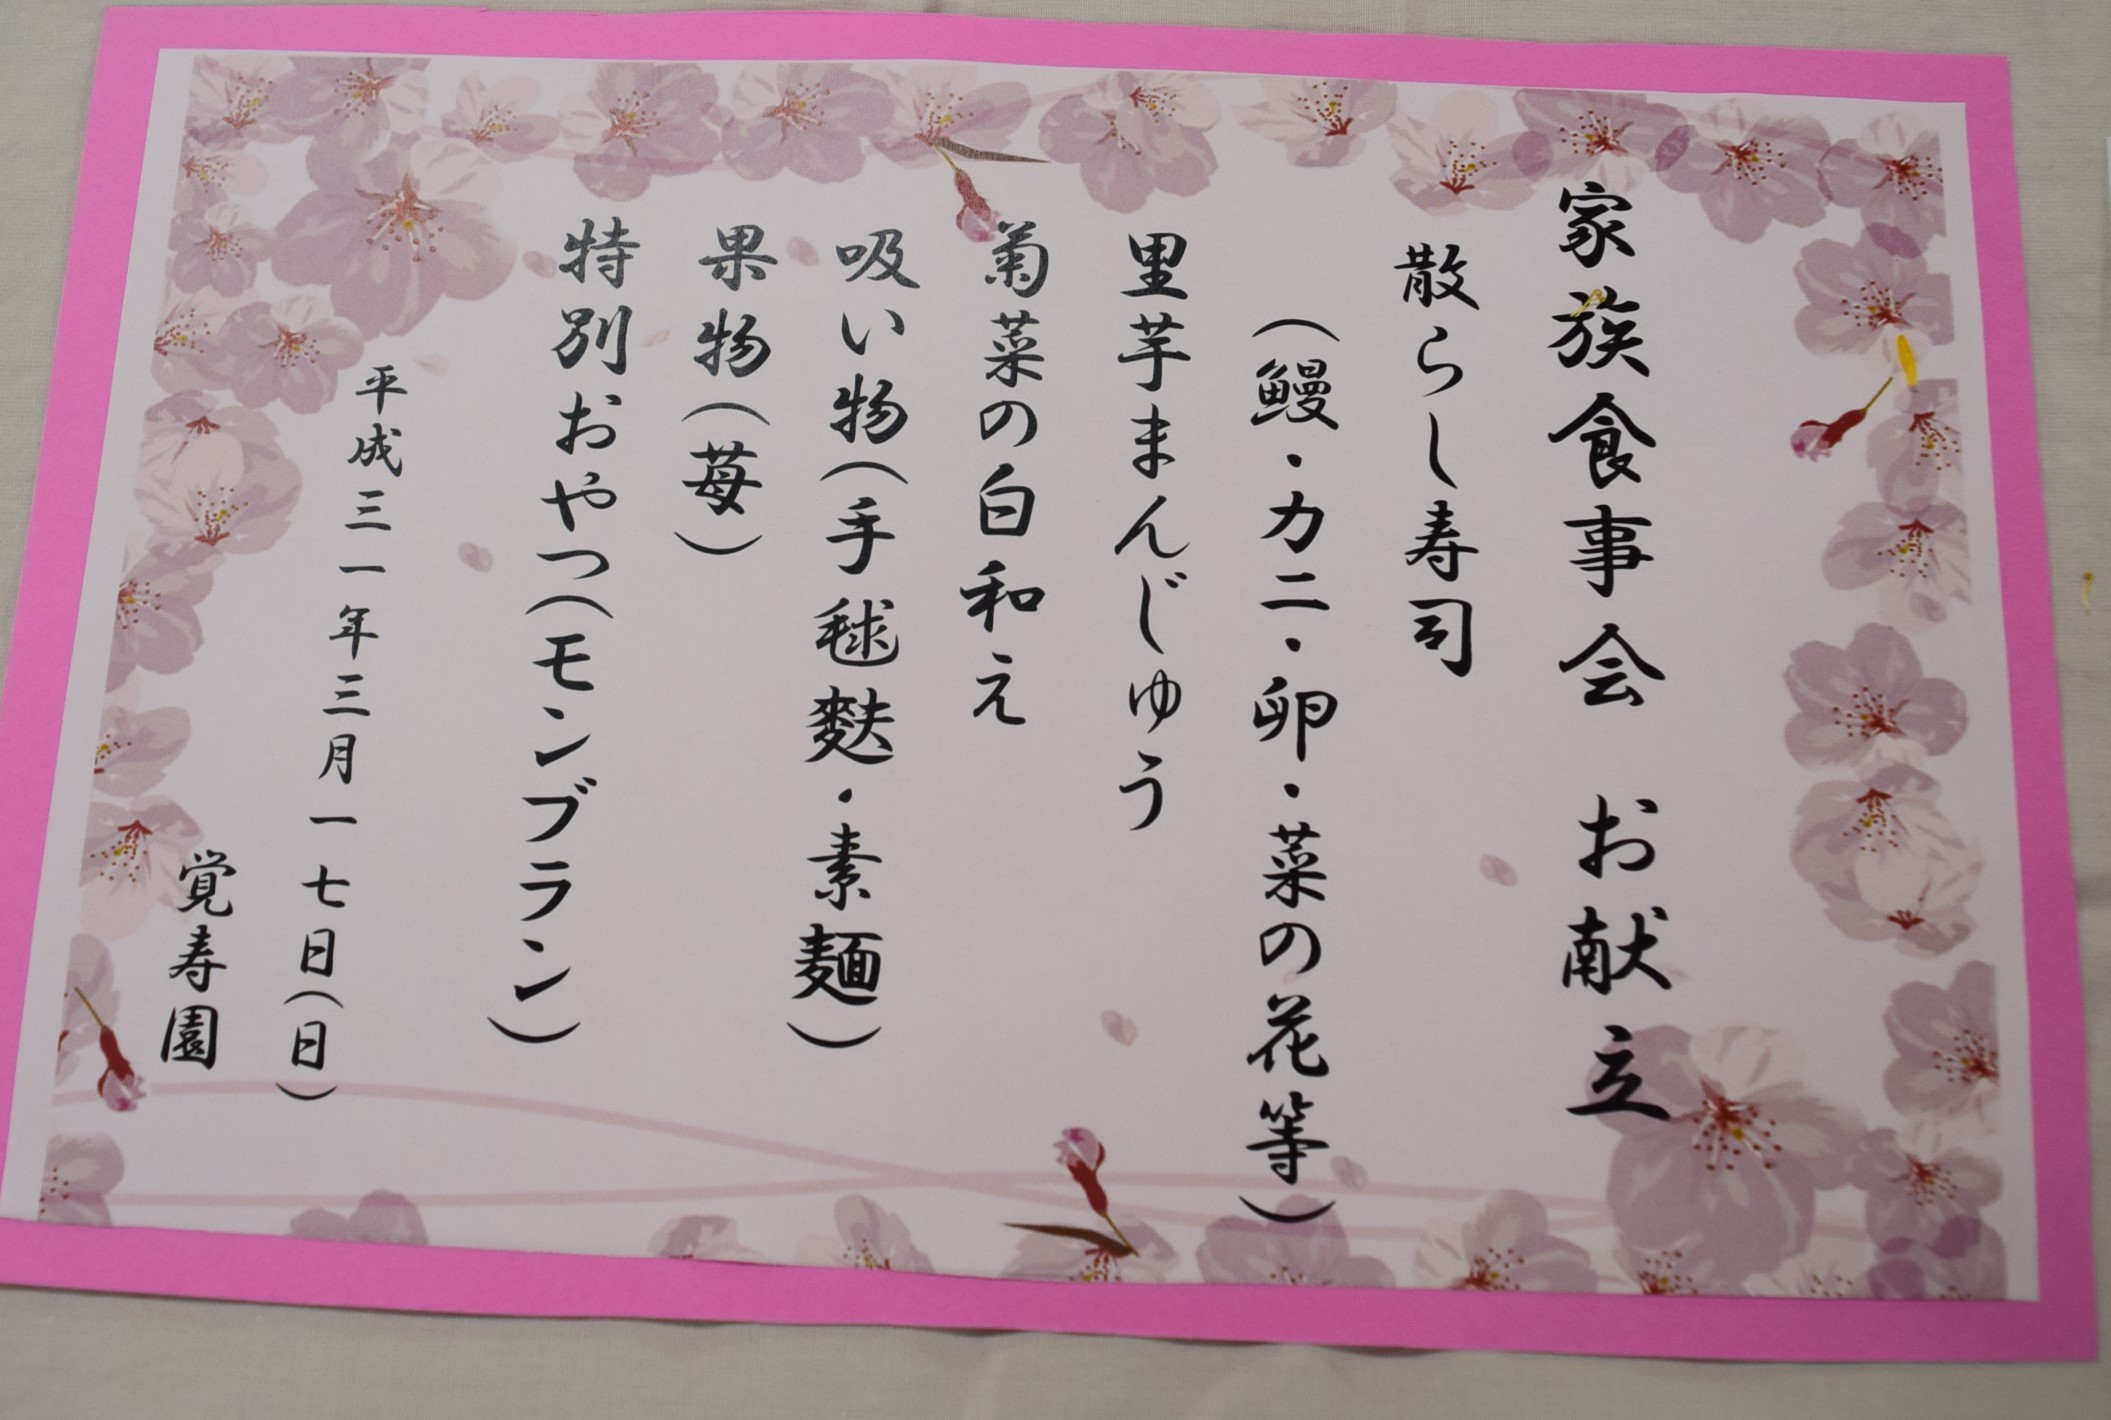 家族食事会 お献立
散らし寿司
(鰻・カニ・卵・菜の花等)
里芋まんじゅう
菊菜の白和え
吸い物(手毬麩・素麺)
果物(苺)
特別おやつ(モンブラン)
平成三一年三月一七日(日)
覚寿園